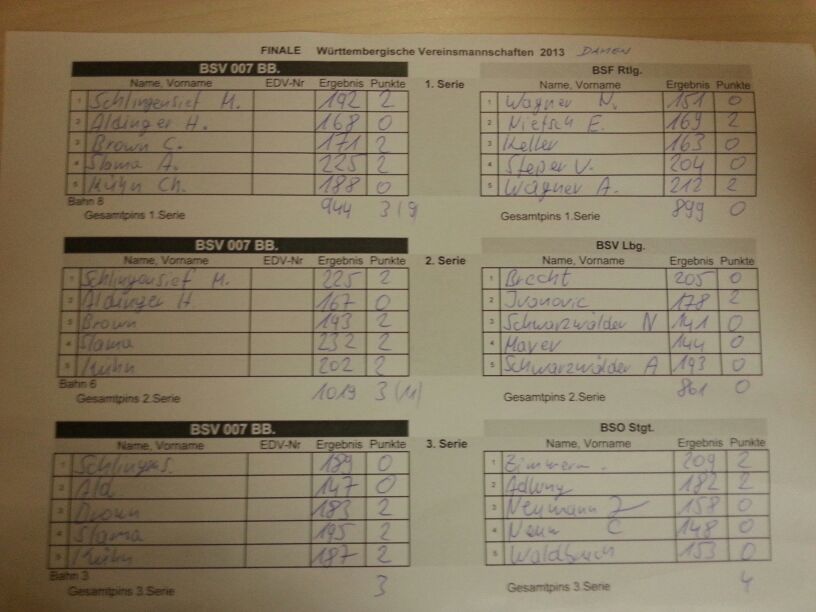 FINALE Württembergische Vereinsmannschaften 2013 DAMEN
BSV 007 BB. BSF Rtlg.
Name, Vorname EDV-Nr Ergebnis Punkte 1. Serie Name, Vorname Ergebnis Punkte
1 Schlingensief M. 192 2 1 Wagner N. 151 0
2 Aldinger H. 168 0 2 Nietsch E. 169 2
3 Brown C. 171 2 3 Keller 163 0
4 Slama A. 225 2 4 Steper V. 204 0
5 Kühn Ch. 188 0 5 Wagner A. 212 2
Bahn 8 944 3 (9) 899 0
Gesamtpins 1.Serie Gesamtpins 1.Serie
BSV 007 BB. BSV Lbg.
Name, Vorname EDV-Nr Ergebnis Punkte 2. Serie Name, Vorname Ergebnis Punkte
1 Schlingensief M. 225 2 1 Brecht 205 0
2 Aldinger H 167 0 2 Ivanovic 178 2
3 Brown 193 2 3 Schwarzwälder N 141 0
4 Slama 232 2 4 Mayer 144 0
5 Kühn 202 2 5 Schwarzwälder A 193 0
Bahn 6 1019 3 (11) 861 0
Gesamtpins 2.Serie Gesamtpins 2.Serie
BSV 007 BB. BSO Stgt.
Name, Vorname EDV-Nr Ergebnis Punkte 3. Serie Name, Vorname Ergebnis Punkte
1 Schlingens. 189 0 1 Zimmerm. 209 2
2 Ald. 147 0 2 Adlung 182 2
3 Brown 183 2 3 Neumann J 158 0
4 Slama 195 2 4 Neum C 148 0
5 Kühn 187 2 5 Waldbuch 153 0
Bahn 3
Gesamtpins 3.Serie 3 Gesamtpins 3.Serie 4